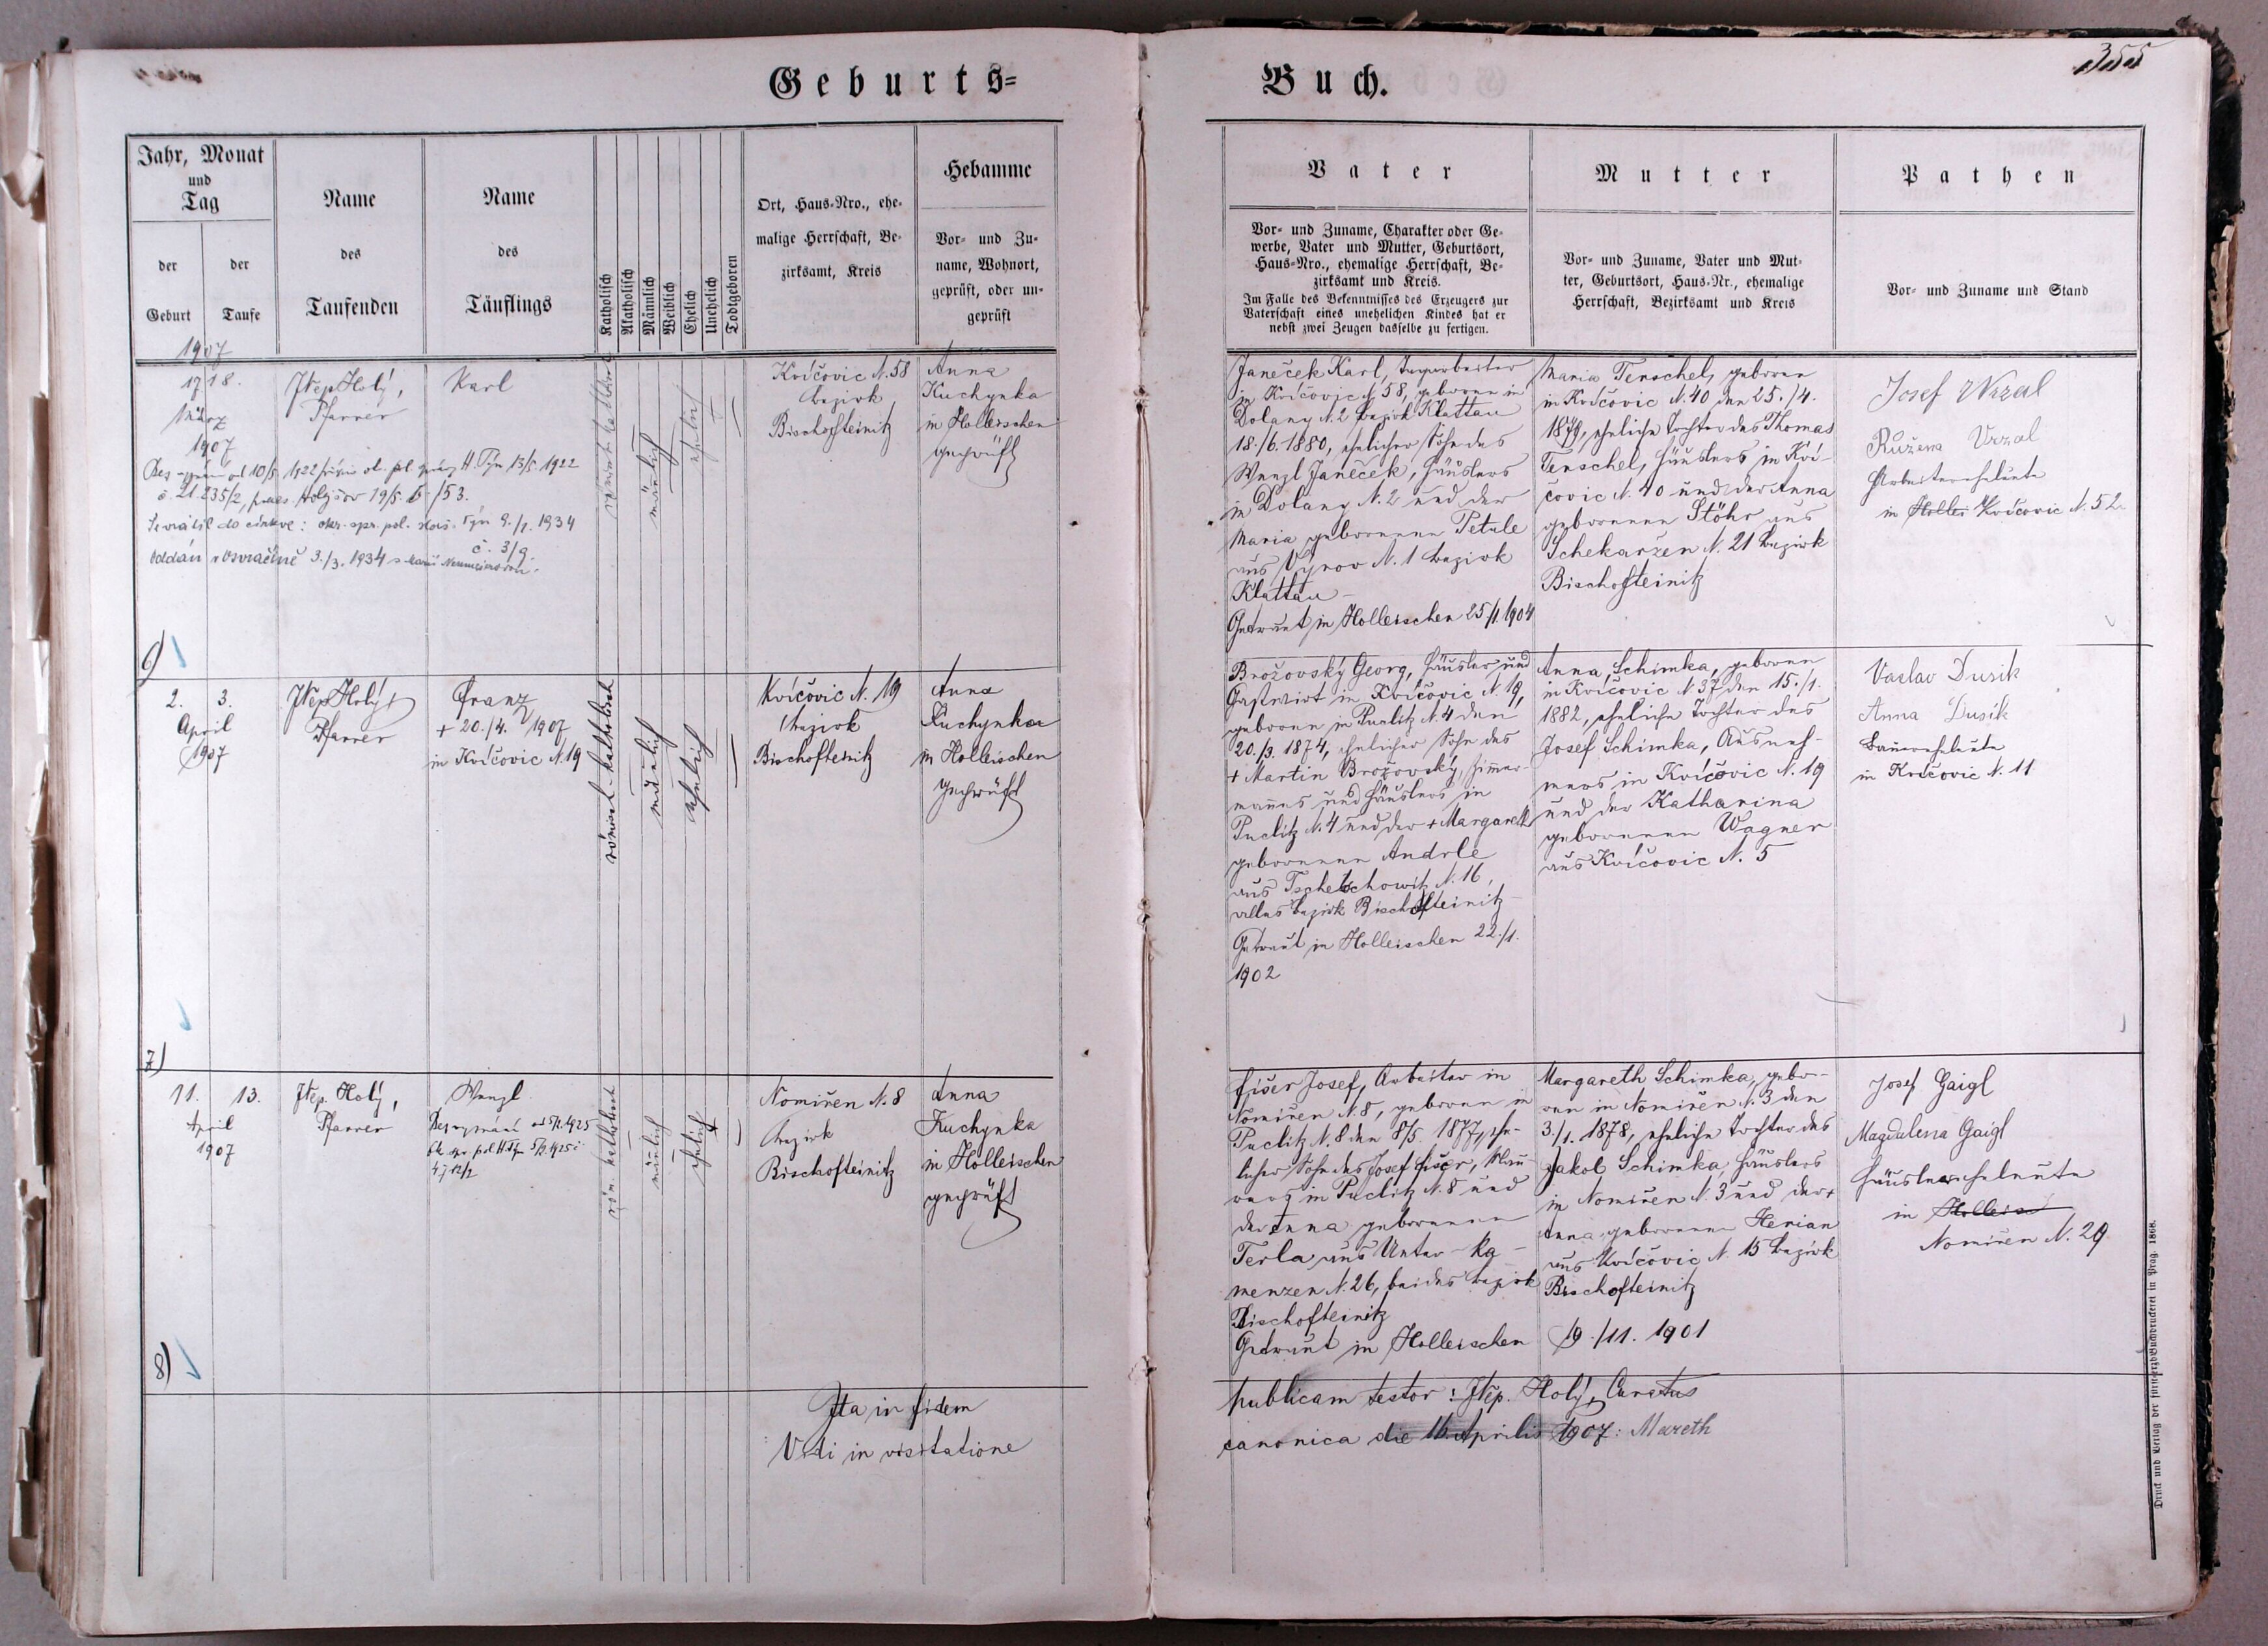 Geburts=
Buch.
355
Jahr, Monat
und
Tag
der
Geburt
der
Taufe
Name
des
Taufenden
Name
des
Täuflings
Katholisch
Akatholisch
Männlich
Weiblich
Ehelich
Unehelich
Todtgeboren
Ort, Haus-Nro., ehe-
malige Herrschaft, Be-
zirksamt, Kreis
Hebamme
Vor- und Zu-
name, Wohnort,
geprüft, oder un-
geprüft
Vater
Vor- und Zuname, Charakter oder Ge-
werbe, Vater und Mutter, Geburtsort,
Haus-Nro., ehemalige Herrschaft, Be-
zirksamt und Kreis.
Im Falle des Bekenntnisses des Erzeugers zur
Vaterschaft eines unehelichen Kindes hat er
nebst zwei Zeugen dasselbe zu fertigen.
Mutter
Vor- und Zuname, Vater und Mut-
ter, Geburtsort, Haus-Nr., ehemalige
Herrschaft, Bezirksamt und Kreis
Pathen
Vor- und Zuname und Stand
1907
17 18.
März
1907
JNep Holý,
Pfarrer
Karl
männlich
ehelich
Kvíčovic N. 58
Bezirk
Bischofteinitz
Anna
Kuchynka
in Holleischen
geprüft
Bez vyznání od 10/5 1922 H. Týn 13/5 1922
č. 21.235/2, 19/5
Se vrátil do církve: okr. spr. pol. Hor. Týn 9./1. 1934
č. 3/9.
oddán v Osvračíně 3./3. 1934 s Marií
Janeček Karl,
in Kvíčovic N. 58, geboren in
Dolany N. 2 Bezirk Klattau
18./6. 1880, ehelicher Sohn des
Wenzl Janeček, Häuslers
in Dolany N. 2 und der
Maria geborenen Petule
aus Vyrov N. 1 Bezirk
Klattau
Getraut in Holleischen 25/1. 1904
Maria Tenschel, geboren
in Kvíčovic N. 40 den 25./4.
1879, eheliche Tochter des Thomas
Tenschel, Häuslers in Kví-
čovic N. 40 und der Anna
geborenen Stöhr aus
Schekaržen N. 21 Bezirk
Bischofteinitz
Josef Wrzal
Růžena Vrzal
Arbeiterseheleute
in Kvíčovic N. 52
6)
2. 3.
April
1907
JNep Holý,
Pfarrer
Franz
+ 20./4. 1907
in Kvíčovic N. 19
römisch-katholisch
männlich
ehelich
Kvíčovic N. 19
Bezirk
Bischofteinitz
Anna
Kuchynka
in Holleischen
geprüft
Brožovský Georg, Häusler und
Gastwirt in Kvíčovic N. 19,
geboren in Puclitz N. 4 den
20./3. 1874, ehelicher Sohn des
+ Martin Brožovský, Zimmer-
mannes und Häuslers in
Puclitz N. 4 und der + Margareth
geborenen Andrle
aus Tschetschowitz N. 16,
alles Bezirk Bischofteinitz
Getraut in Holleischen 22./1.
1902
Anna Schimka, geboren
in Kvíčovic N. 37 den 15./1.
1882, eheliche Tochter des
Josef Schimka, Ausneh-
mers in Kvíčovic N. 19
und der Katharina
geborenen Wagner
aus Kvíčovic N. 5
Vaclav Dusik
Anna Dusik
Bauerseheleute
in Kvíčovic N. 11
7)
11. 13.
April
1907
JNep. Holý,
Pfarrer
Wenzl
Bez vyznání od 1925
röm. katholisch
männlich
ehelich
Nomiřen N. 8
Bezirk
Bischofteinitz
Anna
Kuchynka
in Holleischen
geprüft
Fišer Josef, Arbeiter in
Nomiřen N. 8, geboren in
Puclitz N. 8 den 8/5. 1877, ehe-
licher Sohn des Josef Fišer, Mau-
rers in Puclitz N. 8 und
der Anna geborenen
Terla aus Unter-Ka-
menzen N. 26, beides Bezirk
Bischofteinitz
Getraut in Holleischen 19./11. 1901
Margareth Schimka, gebo-
ren in Nomiřen N. 3 den
3./1. 1878, eheliche Tochter des
Jakob Schimka, Häuslers
in Nomiřen N. 3 und der +
Anna geborenen Herian
aus Kvíčovic N. 15 Bezirk
Bischofteinitz
Josef Gaigl
Magdalena Gaigl
Häuslerseheleute
in
Nomiřen N. 29
8)
Ita in fidem publicam testor: JNep. Holý, Curatus
Vidi in visitatione canonica die 16. Aprilis 1907: Mareth
Druck und Verlag der fürsterzb. Buchdruckerei in Prag. 1868.